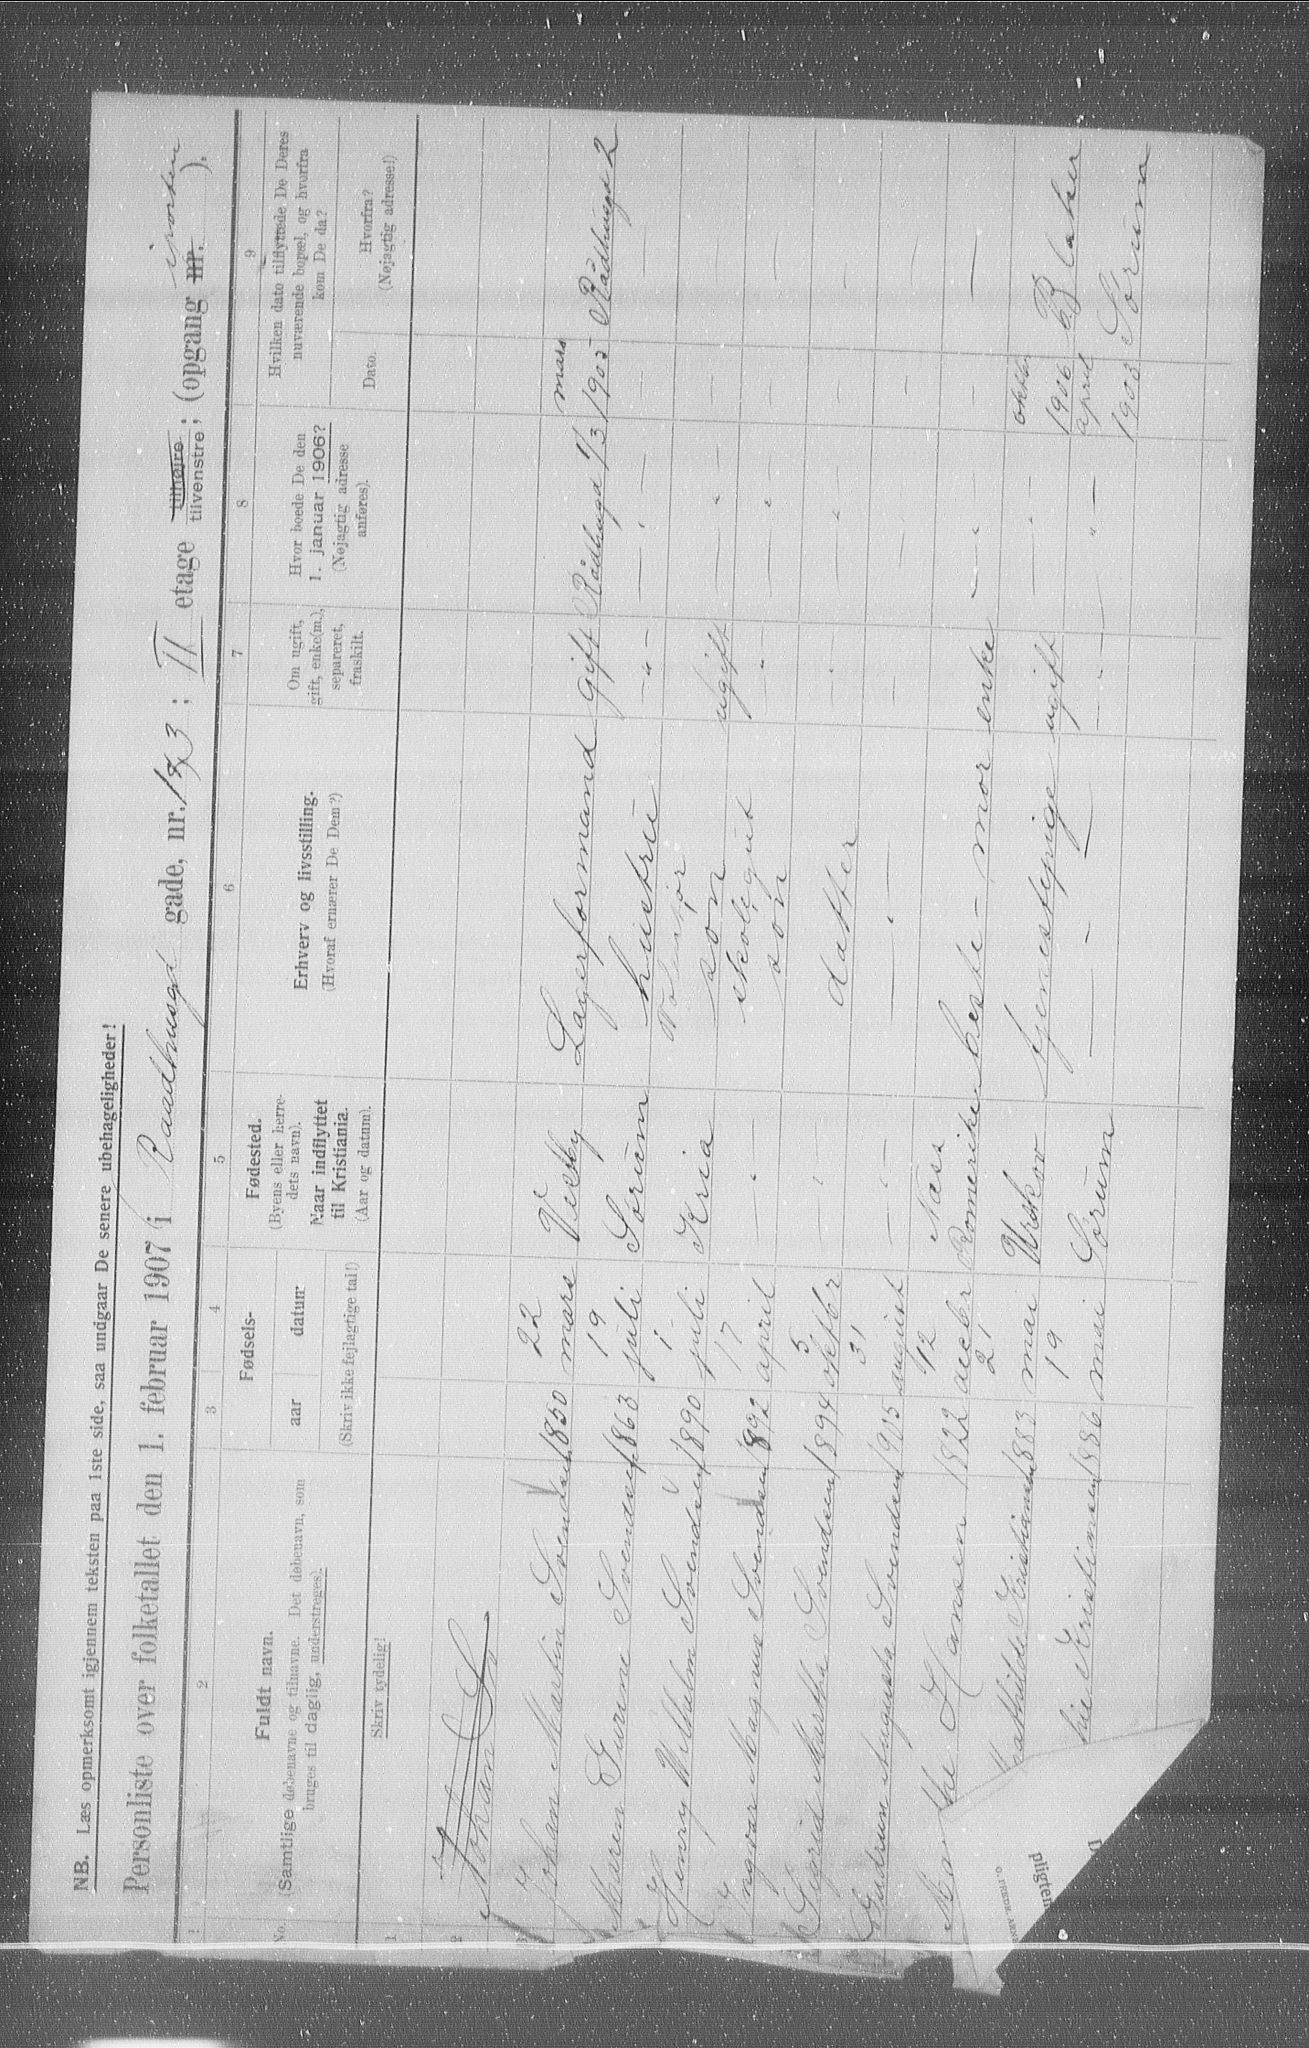 NB. Læs opmerksomt igjennem teksten paa 1ste side, saa undgaar De senere ubehageligheder!
Personliste over folketallet den 1. februar 1907 i Raadhusgd gade, nr. 13; II etage tilhøjre tilvenstre; (opgang nr. iporten).
1 2 3 4 5 6 7 8 9
No.
Fuldt navn.
(Samtlige døbenavne og tilnavne. Det døbenavn, som
bruges til daglig, understreges).
Skriv tydelig!
Fødsels-
aar datum
(Skriv ikke fejlagtige tal!)
Fødested.
(Byens eller herre-
dets navn).
Naar indflyttet
til Kristiania.
(Aar og datum).
Erhverv og livsstilling.
(Hvoraf ernærer De Dem?)
Om ugift,
gift, enke(m.),
separeret,
fraskilt.
Hvor boede De den
1. januar 1906?
(Nøjagtig adresse
anføres).
Hvilken dato tilflyttede De Deres
nuværende bopæl, og hvorfra
kom De da?
Dato.
Hvorfra?
(Nøjagtig adresse!)
1
2 Johan
Johan Martin Svendsen 1850 22 mars Vestby Lagerformand gift Rådhusgd 13 mars 1905 Rådhusgd 2
Maren Gurine Svendsen 1863 19 juli Sørum hustru — " — — " — — —
Henry Vilhelm Svendsen 1890 1 juli Kria søn ugift — " — — —
Ingvar Magnus Svendsen 1892 17 april — " — skolegut søn " — " — — —
Sigrid Martha Svendsen 1894 5 oktbr — " — datter " — " — — —
Gudrun Augusta Svendsen 1905 31 august — " — — " — — — —
Marthe Hansen 1822 12 decbr Næss Romerike beste-mor enke — " — —
Mathilde Kristiansen 1883 21 mai Urskov tjenestepige ugift " oktbr 1906 Blaker
hie Kristiansen 1886 19 mai Sørum — " — — " — — " — april 1903 Sørum
pligten